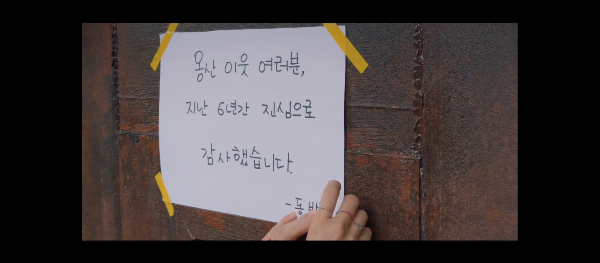 용산 이웃 여러분,
지난 6년간 진심으로
감사했습니다.